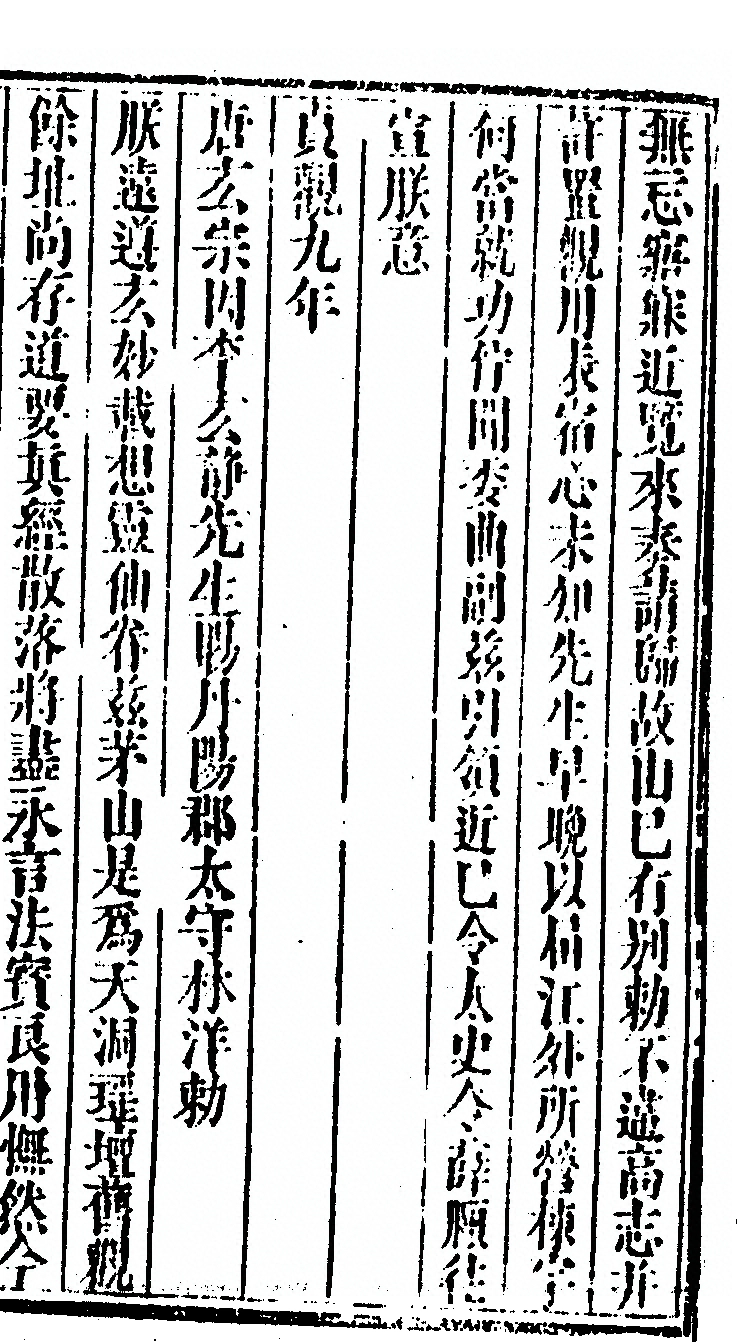 無忘寤寐近覽來奏請歸故山已有別勅不違高志并
許置觀用表宿心未知先生早晚以屆江外所營棟宇
何當就功佇聞委曲副兹引領近已令太史令薛頤往
宣朕意
貞觀九年
唐玄宗因李玄静先生賜丹陽郡太守林洋勅
朕遠遵玄妙載想靈仙眷兹茅山是為天洞瑶壇舊觀
餘址尚存道要真經散落將盡永言法寶良用憮然今